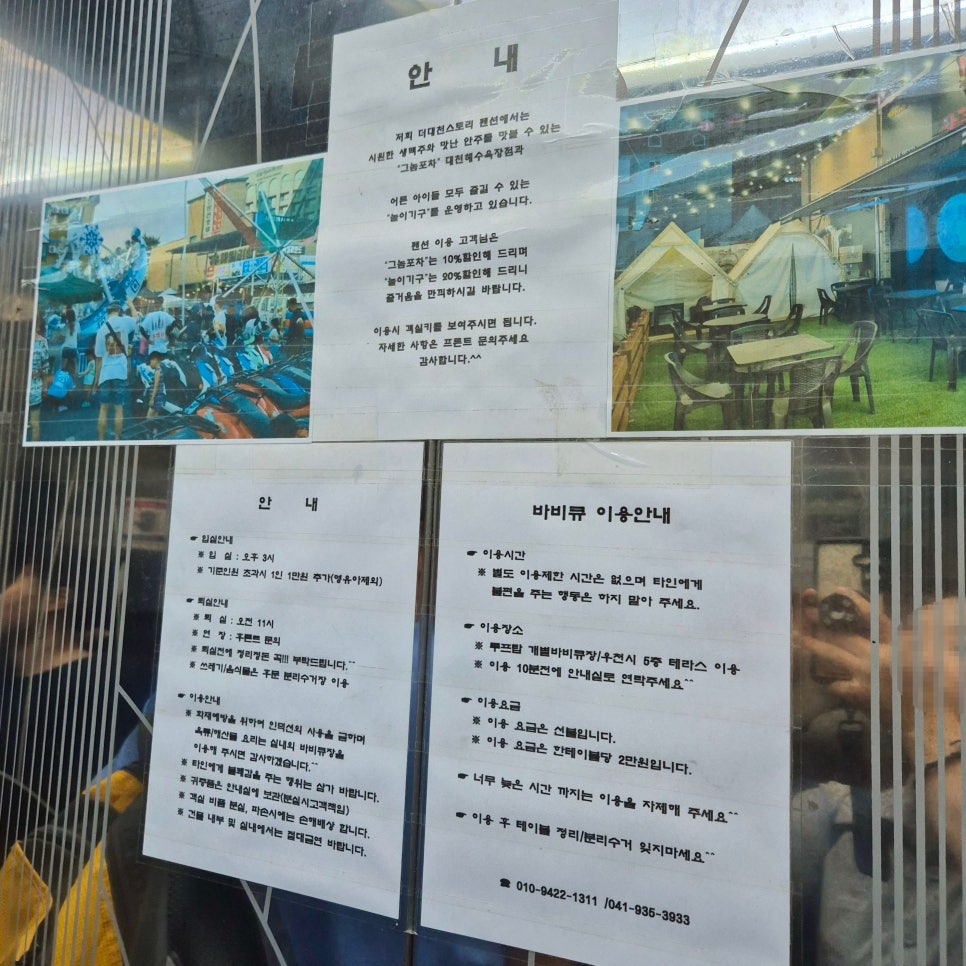 안 내
저희 더대천스토리 펜션에서는
시원한 생맥주와 맛난 안주를 맛볼 수 있는
"그놈포차" 대천해수욕장점과
어른 아이들 모두 즐길 수 있는
"놀이기구"를 운영하고 있습니다.
펜션 이용 고객님은
"그놈포차"는 10%할인해 드리며
"놀이기구"는 20%할인해 드리니
즐거움을 만끽하시길 바랍니다.
이용시 객실키를 보여주시면 됩니다.
자세한 사항은 프론트 문의주세요
감사합니다.^^
안 내
☛ 입실안내
※ 입 실 : 오후 3시
※ 기준인원 초과시 1인 1만원 추가(영유아제외)
☛ 퇴실안내
※ 퇴 실 : 오전 11시
※ 연 장 : 후론트 문의
※ 퇴실전에 정리정돈 꼭!!! 부탁드립니다.^^
※ 쓰레기/음식물은 후문 분리수거장 이용
☛ 이용안내
※ 화재예방을 위하여 인덕션외 사용을 금하며
육류/해산물 요리는 실내외 바비큐장을
이용해 주시면 감사하겠습니다.^^
※ 타인에게 불쾌감을 주는 행위는 삼가 바랍니다.
※ 귀중품은 안내실에 보관(분실시고객책임)
※ 객실 비품 분실, 파손시에는 손해배상 합니다.
※ 건물 내부 및 실내에서는 절대금연 바랍니다.
바비큐 이용안내
☛ 이용시간
※ 별도 이용제한 시간은 없으며 타인에게
불편을 주는 행동은 하지 말아 주세요.
☛ 이용장소
※ 루프탑 개별바비큐장/우천시 5층 테라스 이용
※ 이용 10분전에 안내실로 연락주세요^^
☛ 이용요금
※ 이용 요금은 선불입니다.
※ 이용 요금은 한테이블당 2만원입니다.
☛ 너무 늦은 시간 까지는 이용을 자제해 주세요^^
☛ 이용 후 테이블 정리/분리수거 잊지마세요^^
☎ 010-9422-1311 /041-935-3933